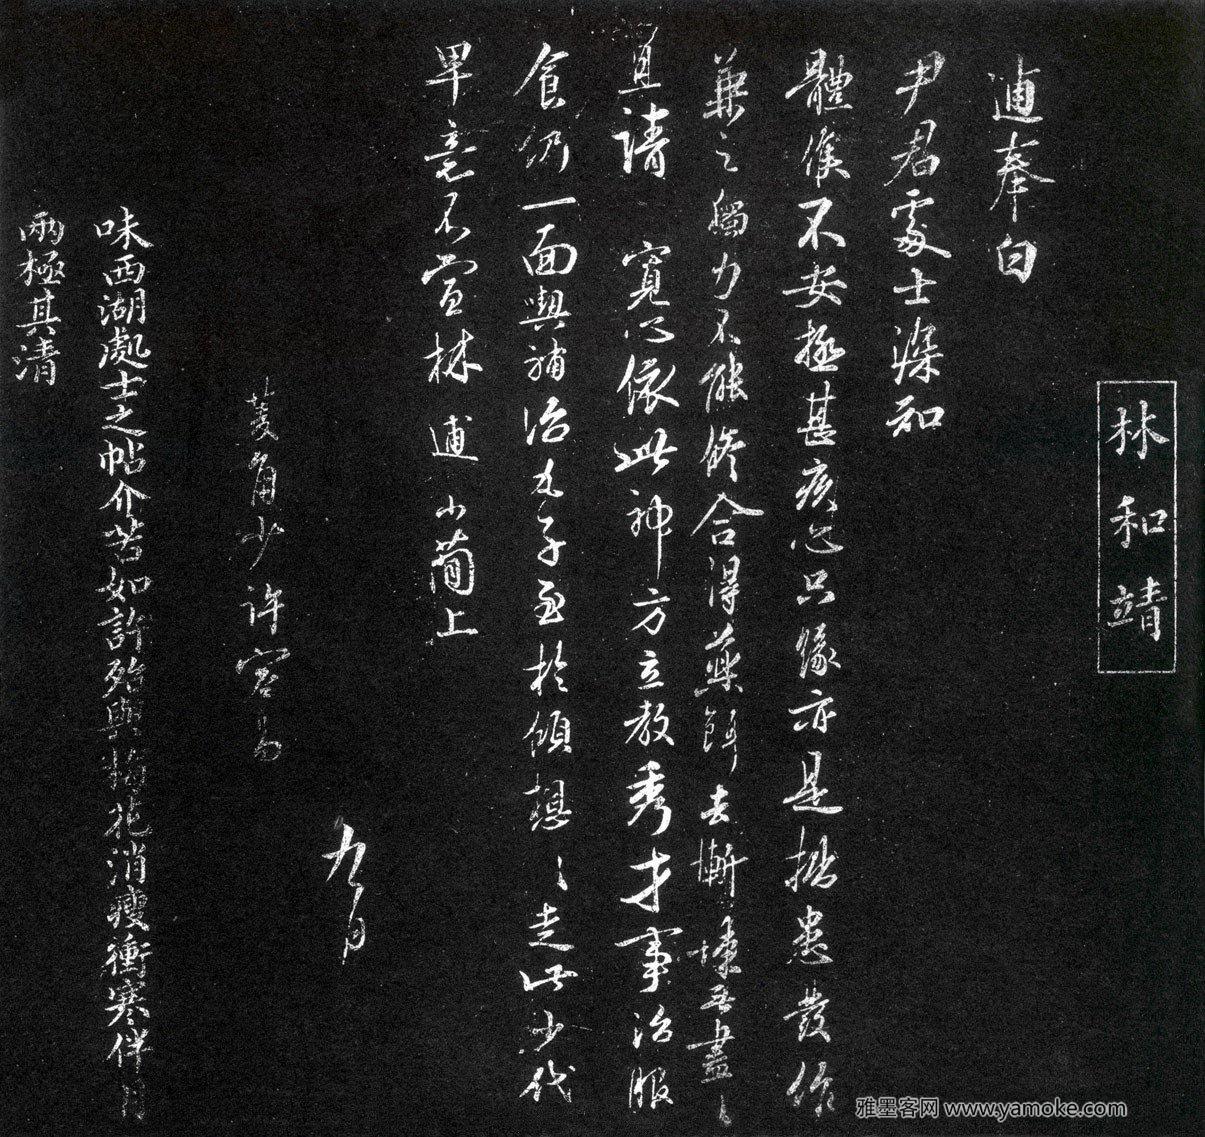 林和靖
逋奉白
尹君處士深知
體候不安極甚疾心只緣亦是拙患發作
兼之觸力不能修合得藥餌去慚悚無盡〻
且請 寬心依此神方立教秀才事治服
食仍一面與補治丸子至於傾想〻走此少代
早毫不宣林逋小簡上
九月
菱角少許容易
味西湖處士之帖介苦如許殆與梅花消瘦衝寒伴月
兩極其清
雅墨客网 www.yamoke.com